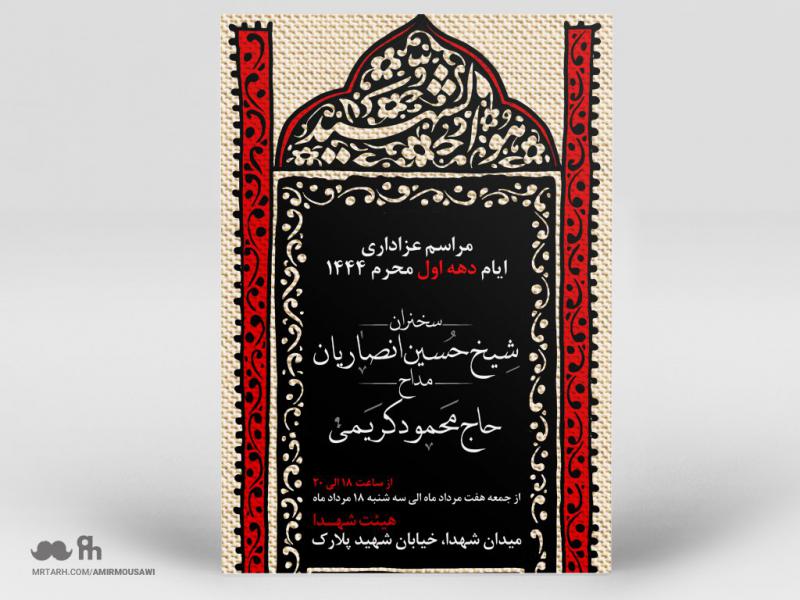 هو الشهید
مراسم عزاداری
ایام دهه اول محرم ۱۴۴۴
سخنران
شیخ حُسین انصاریان
مداح
حاج مَحمود کریمی
از ساعت ۱۸ الی ۲۰
از جمعه هفت مرداد ماه الی سه شنبه ۱۸ مرداد ماه
هیئت شهدا
میدان شهدا، خیابان شهید پلارک
MRTARH.COM/AMIRMOUSAWI